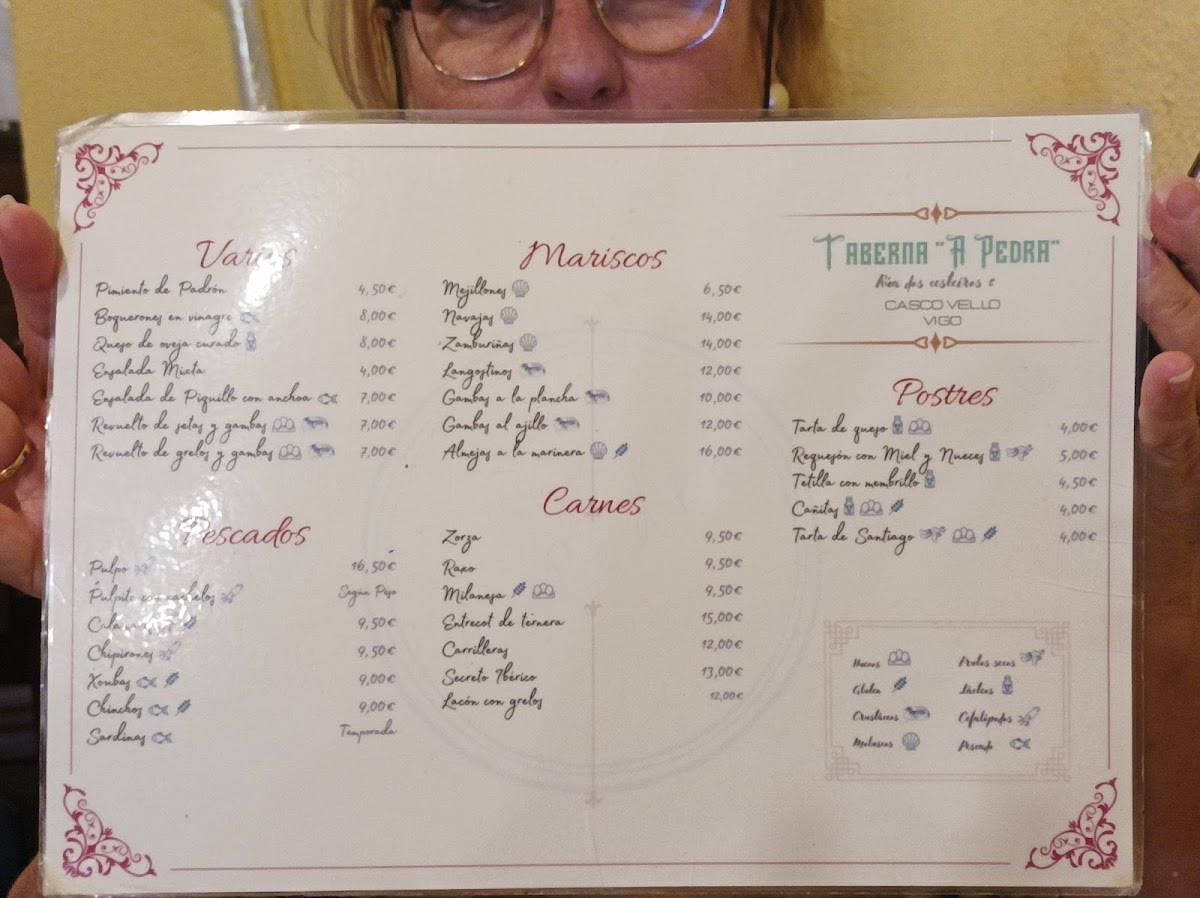 Varios
Pimiento de Padrón 4,50€
Boquerones en vinagre 8,00€
Queso de oveja curado 8,00€
Ensalada Mixta 4,00€
Ensalada de Piquillo con anchoa 7,00€
Revuelto de setas y gambas 7,00€
Revuelto de grelos y gambas 7,00€
Pescados
Pulpo 16,50€
Pulpito con cachelos Según Peso
9,50€
Chipirones 9,50€
Xoubas 9,00€
Chinchos 9,00€
Sardinas Temporada
Mariscos
Mejillones 6,50€
Navajas 14,00€
Zamburiñas 14,00€
Langostinos 12,00€
Gambas a la plancha 10,00€
Gambas al ajillo 12,00€
Almejas a la marinera 16,00€
Carnes
Zorza 9,50€
Raxo 9,50€
Milanesa 9,50€
Entrecot de ternera 15,00€
Carrilleras 12,00€
Secreto Ibérico 13,00€
Lacón con grelos 12,00€
TABERNA "A PEDRA"
Rúa dos cesteiros 2
CASCO VELLO
VIGO
Postres
Tarta de queso 4,00€
Requesón con Miel y Nueces 5,00€
Tetilla con membrillo 4,50€
Cañitas 4,00€
Tarta de Santiago 4,00€
Huevos Frutos secos
Gluten Lácteos
Crustáceos Cefalópodos
Moluscos Pescado